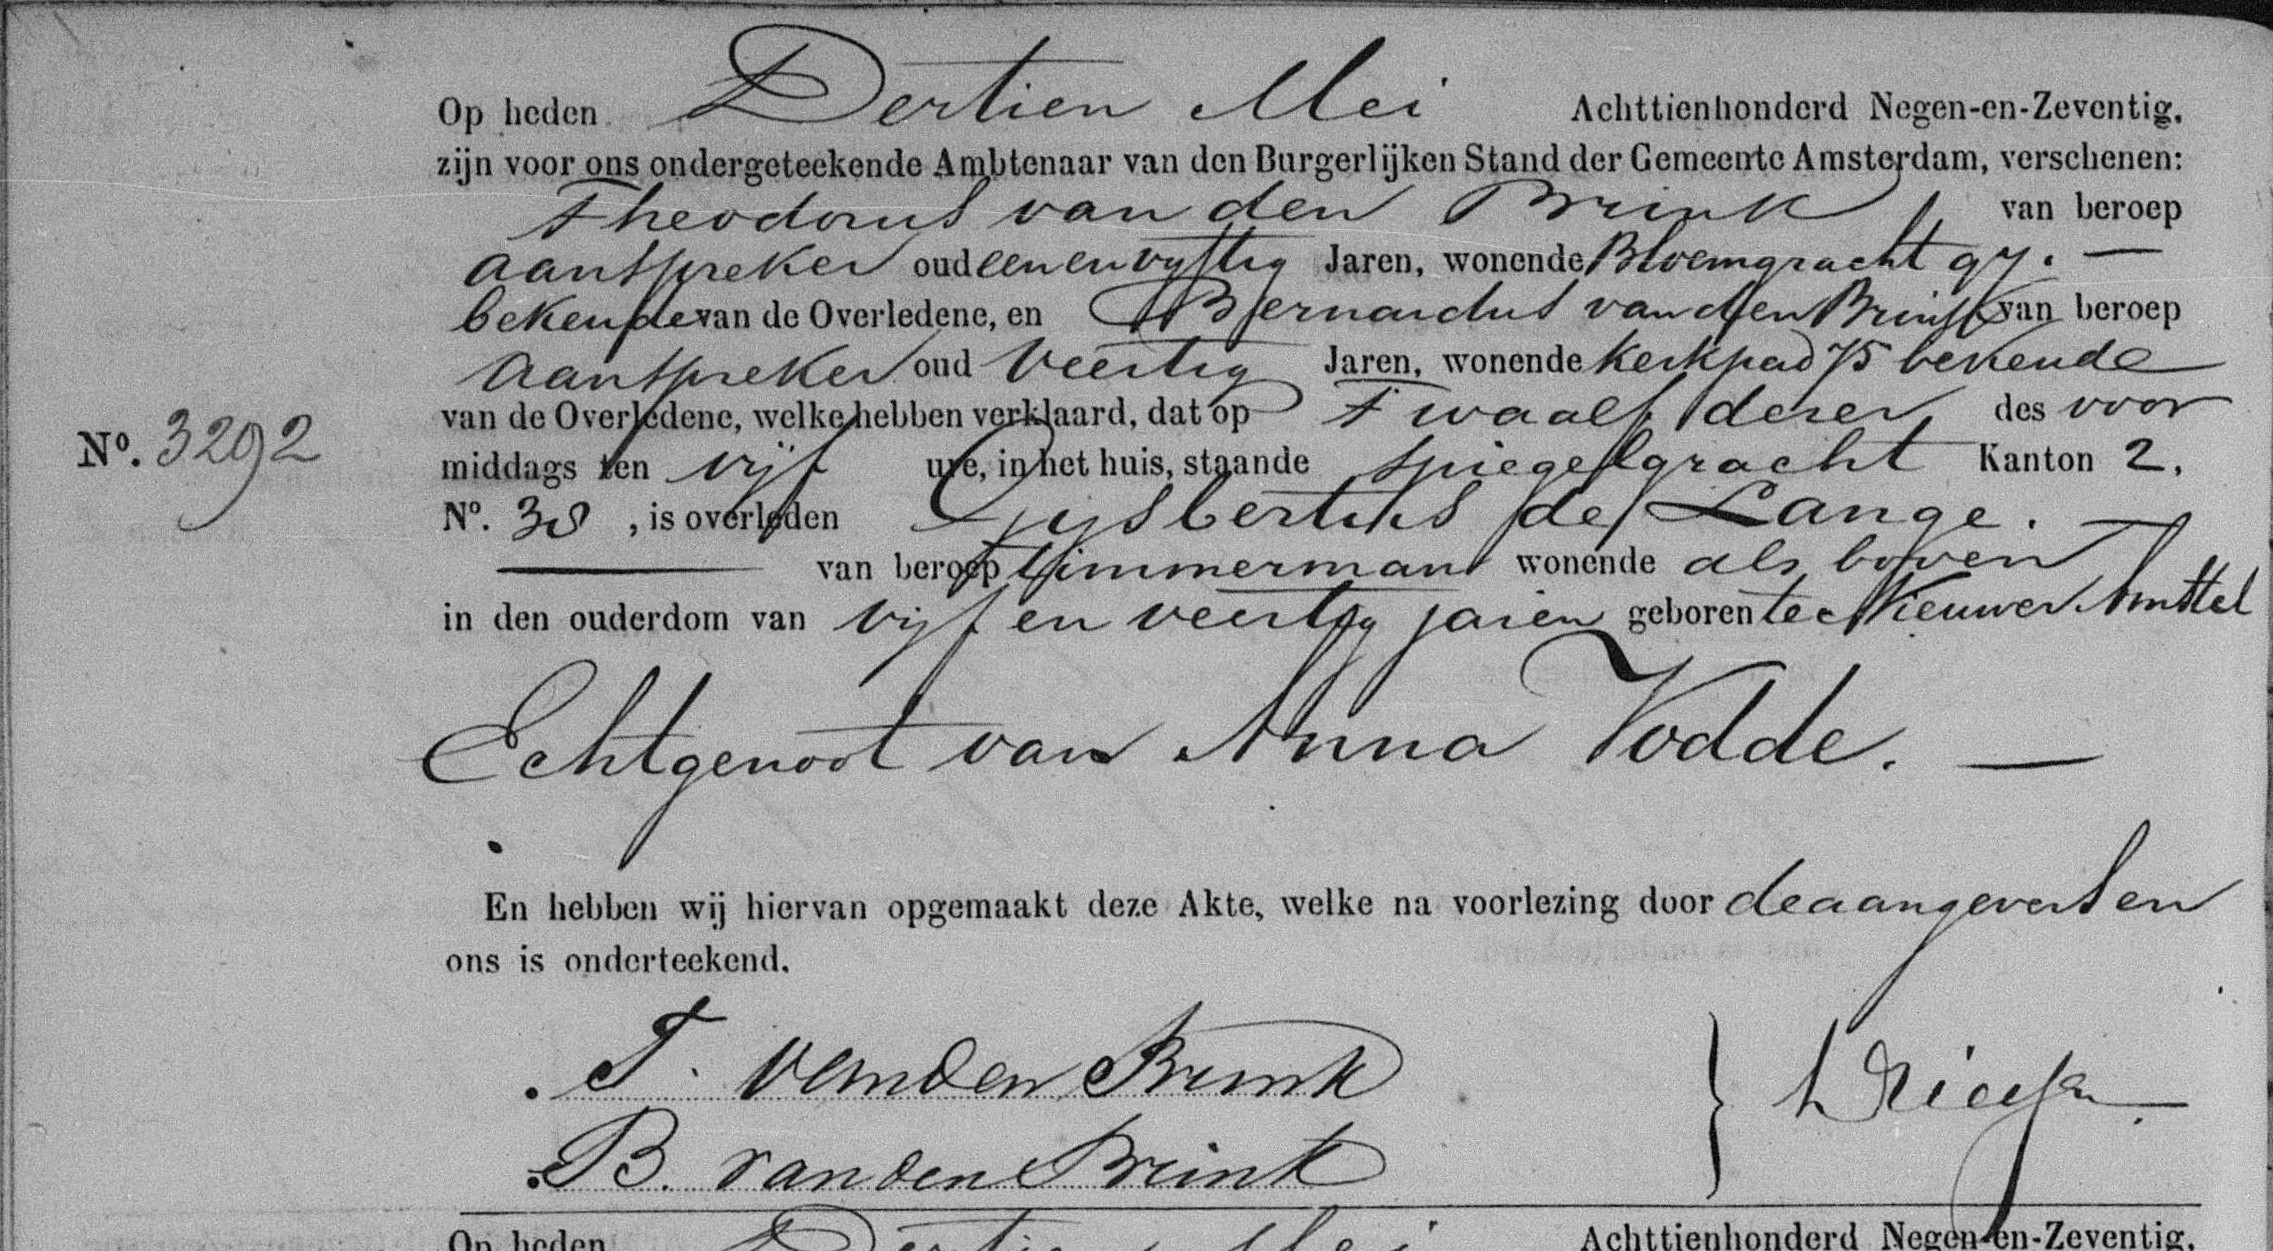 Op heden Dertien Mei Achttienhonderd Negen-en-Zeventig,
zijn voor ons ondergeteekende Ambtenaar van den Burgerlijken Stand der Gemeente Amsterdam, verschenen:
Theodorus van den Brink, van beroep
aanspreker oud een en vyftig Jaren, wonende Bloemgracht 97. —
bekende van de Overledene, en Bernardus van den Brink van beroep
aanspreker oud veertig Jaren, wonende Kerkpad 75 bekende
van de Overledene, welke hebben verklaard, dat op Twaalf dezer des voor
No. 3292
middags ten vijf ure, in het huis, staande Spiegelgracht Kanton 2.
No. 38, is overleden Gysbertus de Lange. —
— van beroep timmerman wonende als boven
in den ouderdom van vijf en veertig jaren geboren te Nieuwer Amstel
Echtgenoot van Anna Vodde. —
En hebben wij hiervan opgemaakt deze Akte, welke na voorlezing door de aangevers en
ons is onderteekend.
T. van den Brink
B. van den Brink
Op heden Dertien Mei Achttienhonderd Negen-en-Zeventig,